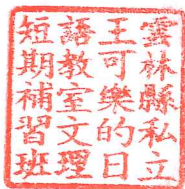 雲林縣私立
王可樂的日
語教室文理
短期補習班